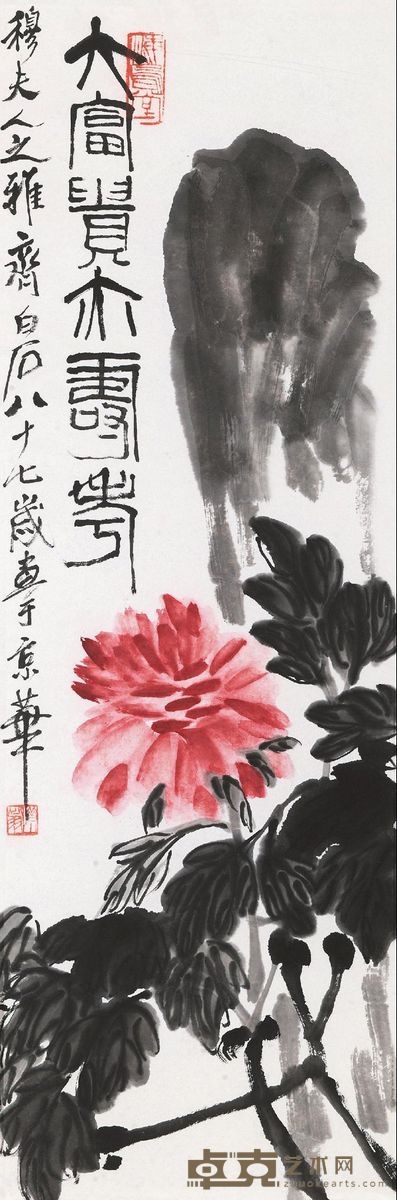 大富貴亦壽考
穆夫人之雅齊白石八十七歲畫于京華
卓克艺术网
www.zhuokearts.com